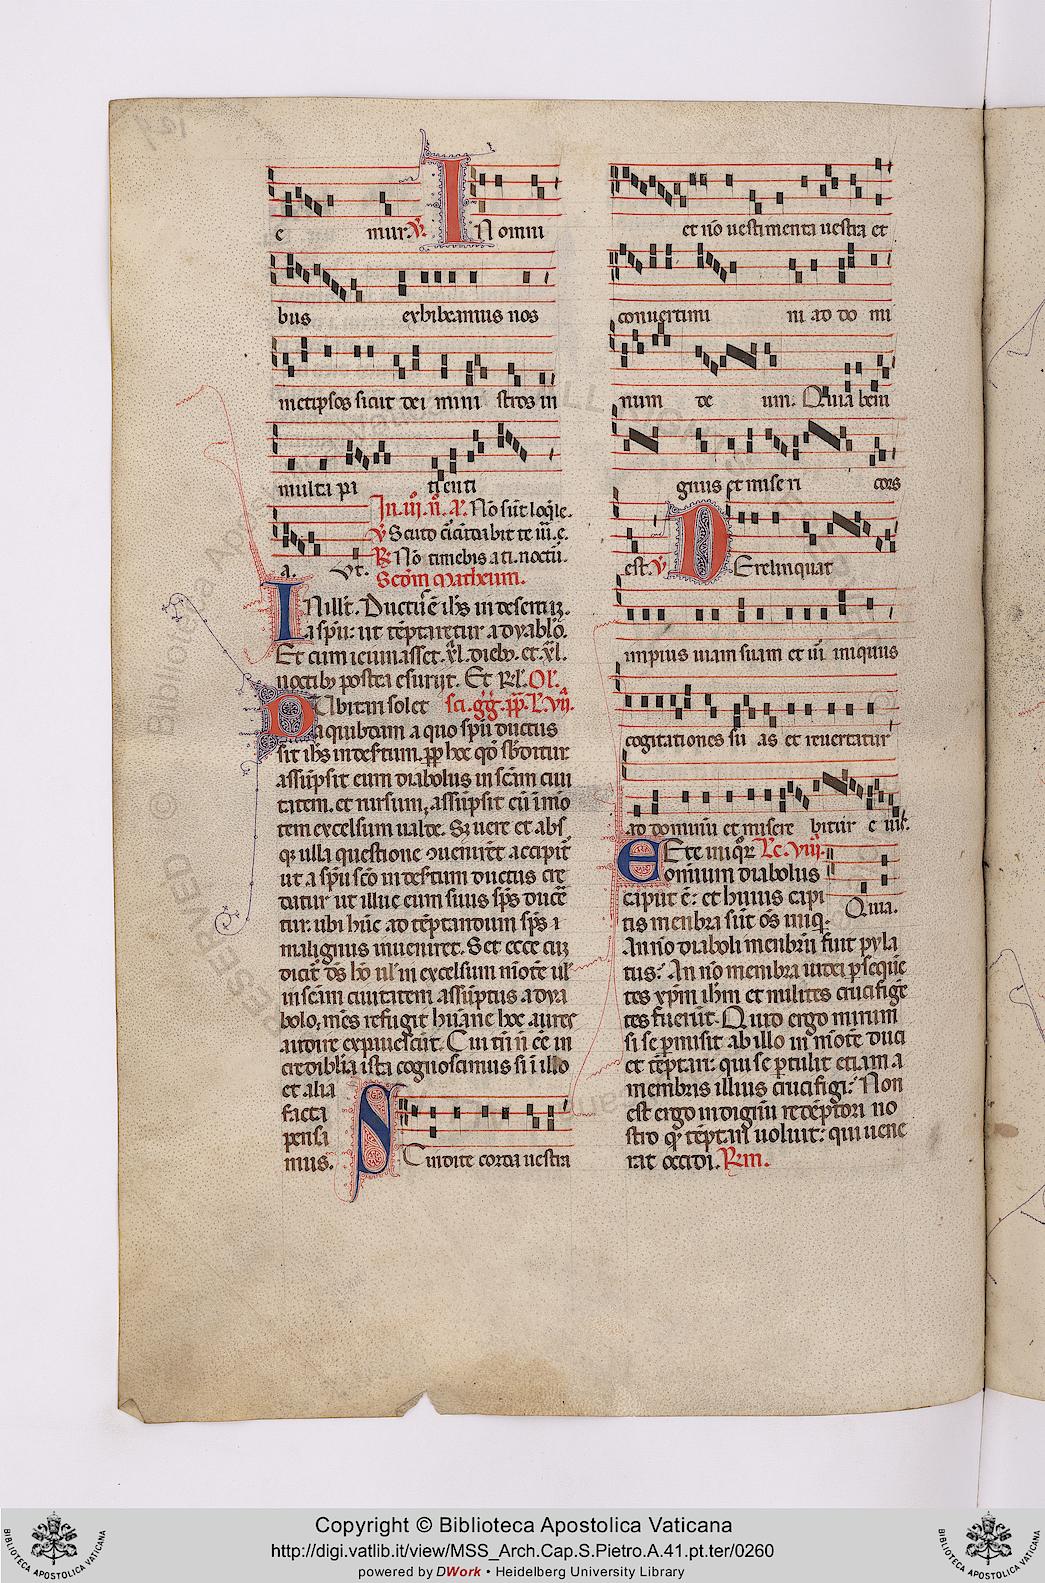 e mur. V. I N omni
bus exhibeamus nos
metipsos sicut dei mini stros in
multa pi tienti
In. iij. n̄. a. Nō sūt loq̄le.
V Scuto ciꝛcūdabit te iii. e.
a. Vt. R. Nō timebis a ti. noctū.
Scdm Matheum.
INill't. Ductꝰ ē ihs in desertū
a spū: ut tēptaretur a dyablo.
Et cum ieiunasset .xl. dieb. et .xl.
noctib postea esurijt. Et Rl. Ol'.
DUbitari solet sci. gg. pp. L. vij.
a quibdam a quo spū ductus
sit ihs in desertum. pp hoc qd sbditur
assūpsit eum diabolus in scām ciui
tatem. et rursum, assūpsit eū i mō
tem excelsum ualde. Sz uere et abs
q ulla questione ueniēt accipit
ut a spū scō in desertum ductus cre
datur ut illuc eum suus sps duce
ret. ubi hūc ad tēptandum sps
malignus inueniret. Set ecce cū
dicit ds hō ul' in excelsum mōte ul'
in scām ciuitatem assūptus a dya
bolo, mēs refugit humane hoc aures
audire expauescūt. Cui tn n eē in
credibilia ista cognoscimus si i illo
et alia
facta
pensa
mus. S Cindite corda uestra
et nō uestimenta uestra et
conuertimi ni ad do mi
num de um. Quia beni
gnus et mise ri cors
est. V. D Erelinquat
impius uiam suam et uir iniquus
cogitationes su as et reuertatur
ad dominū et misere bitur e ius.
CErte iniqꝛ Lc. viij.
omnium diabolus
caput ē: et huius capi
tis menbra sūt ōs iniq. Quia.
An nō diaboli menbrū fuit pyla
tus? An nō membra iudei pseque
tes xpm ihm et milites crucifigē
tes fuerūt. Quid ergo mirum
si se pmisit ab illo in mōte duci
et tēptari: qui se ptulit etiam a
membris illius crucifigi? Non
est ergo indignū redēptori no
stro q tēptari uoluit: qui uene
rat occidi. Rm.
Copyright © Biblioteca Apostolica Vaticana
http://digi.vatlib.it/view/MSS_Arch.Cap.S.Pietro.A.41.pt.ter/0260
powered by DWork • Heidelberg University Library
BIBLIOTECA APOSTOLICA VATICANA
BIBLIOTECA APOSTOLICA VATICANA